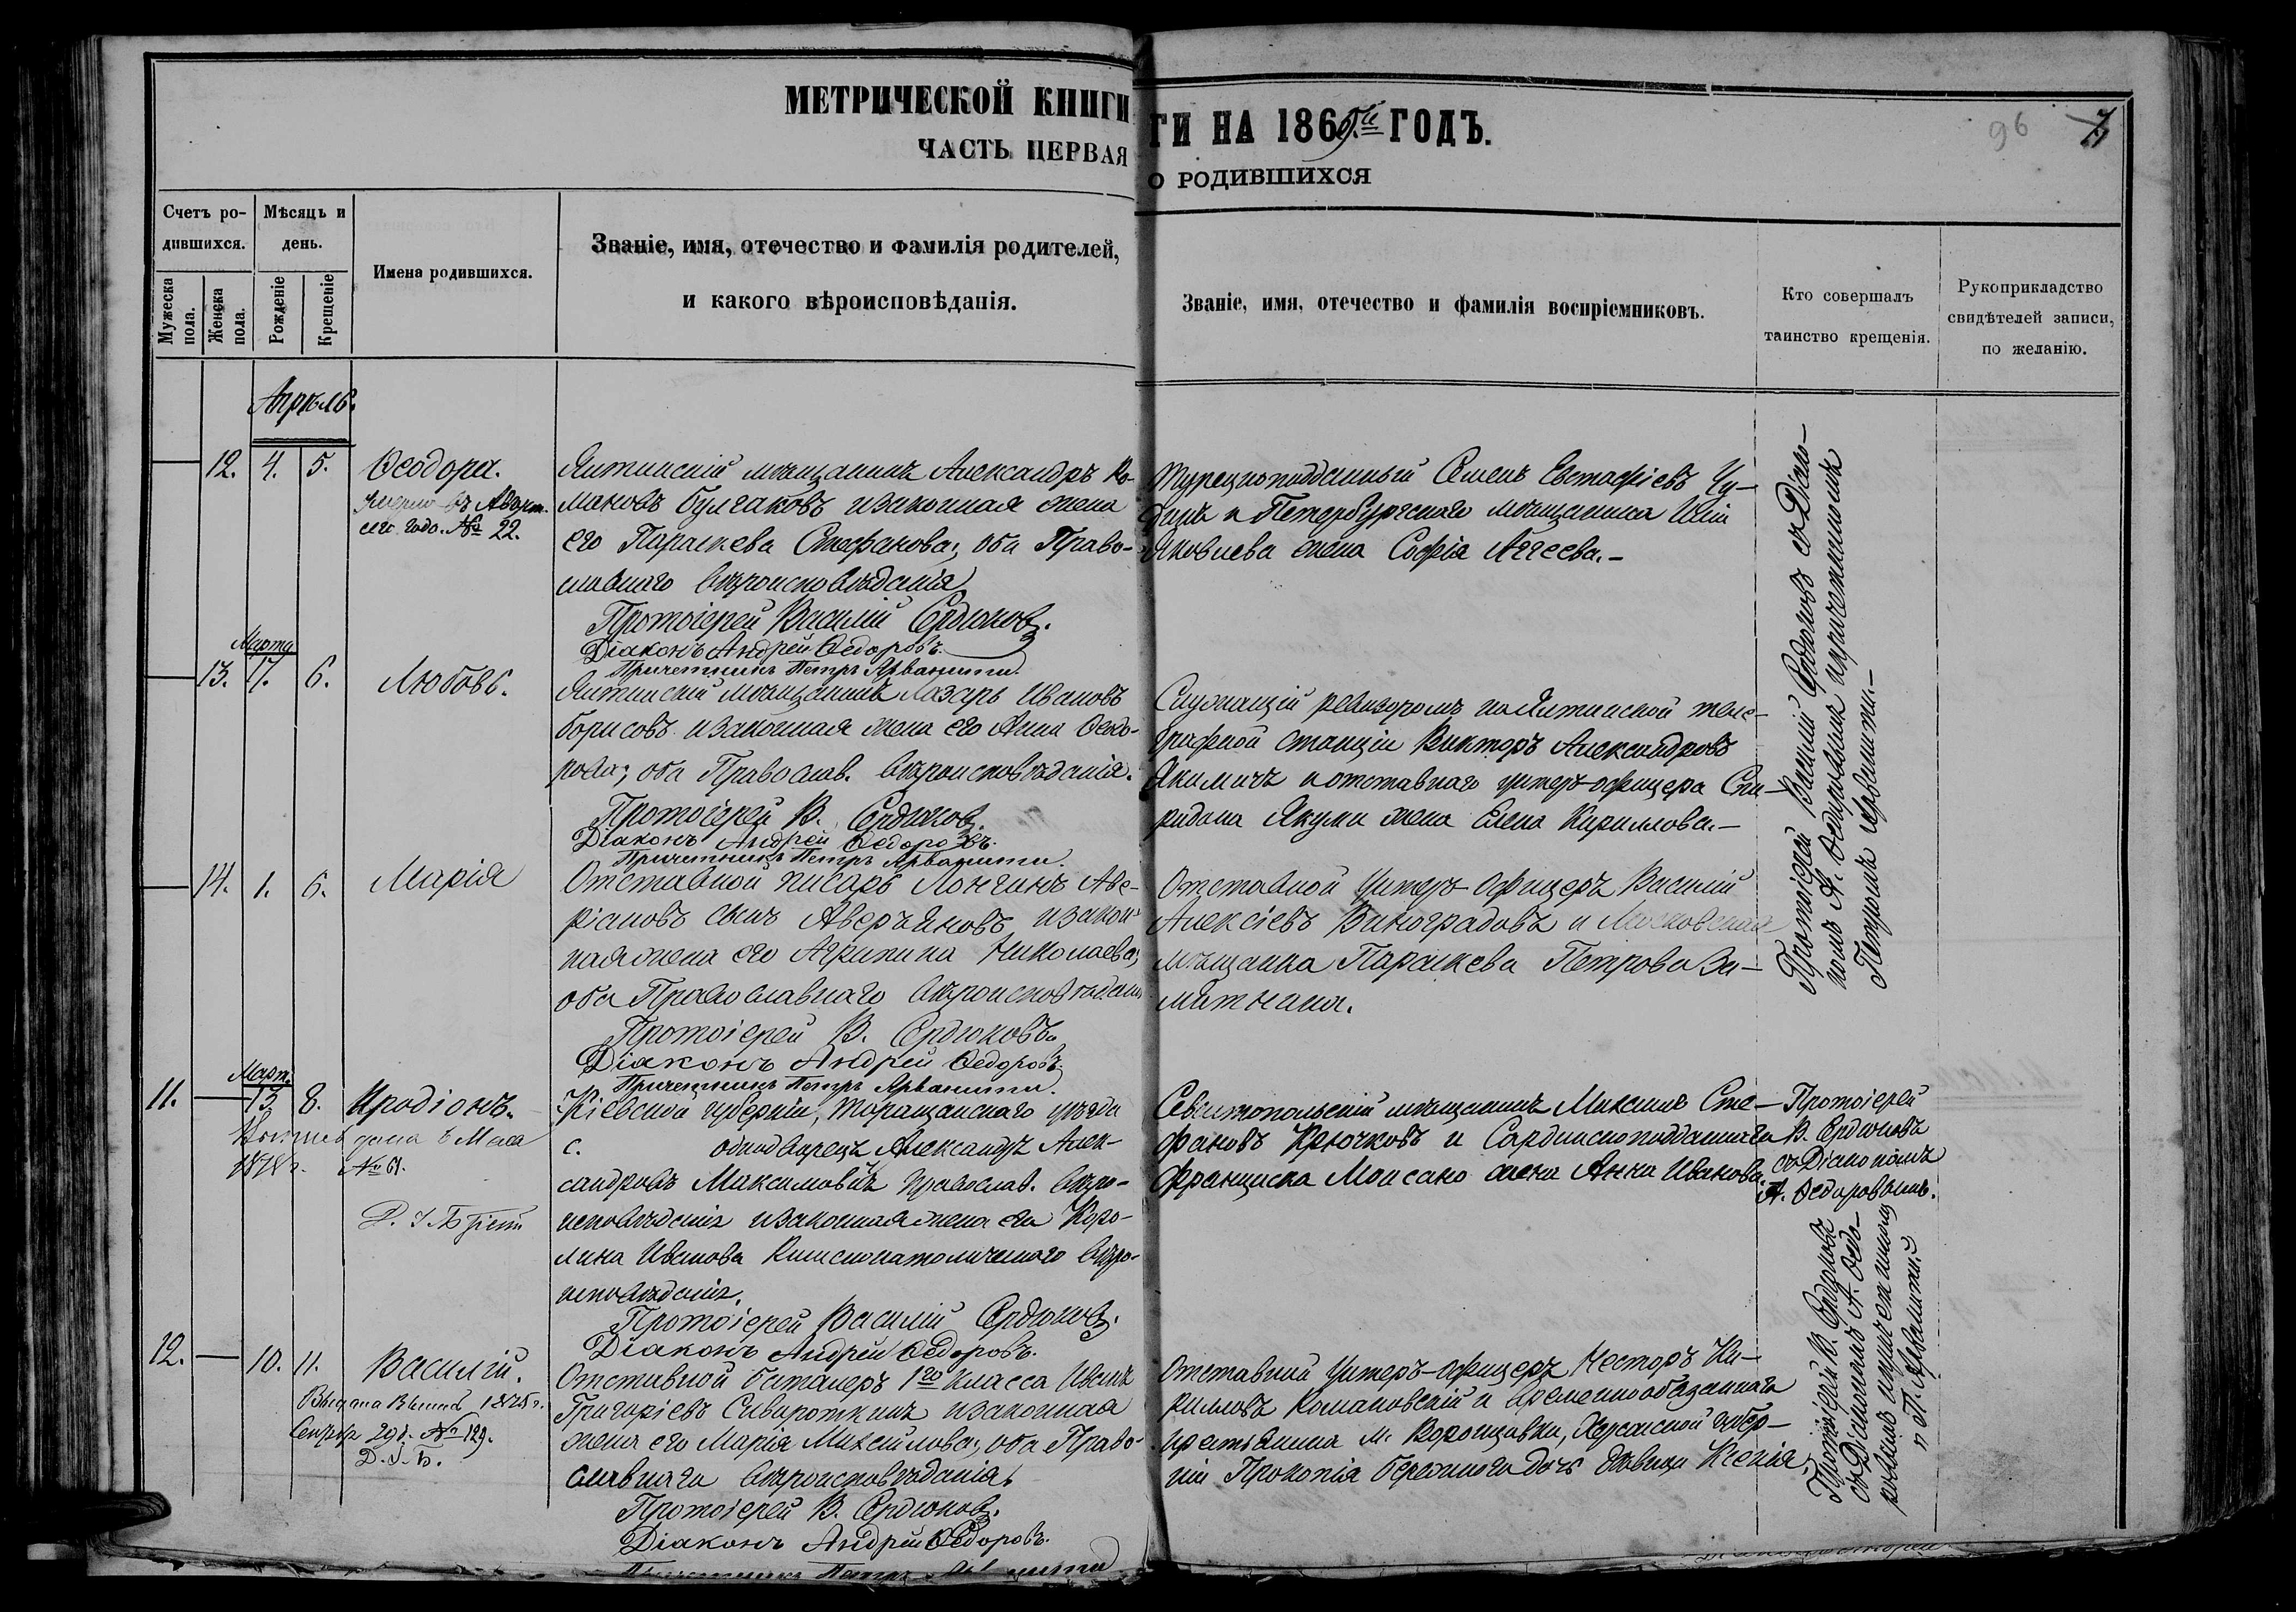 МЕТРИЧЕСКОЙ КНИГИ
ЧАСТЬ ПЕРВАЯ
ГИ НА 1869.й ГОДЪ.
О РОДИВШИХСЯ
96
7
Счетъ ро-
дившихся.
Мѣсяцъ и
день.
Мужеска
пола.
Женска
пола.
Рожденіе
Крещеніе
Имена родившихся.
Званіе, имя, отечество и фамилія родителей,
и какого вѣроисповѣданія.
Званіе, имя, отечество и фамилія воспріемниковъ.
Кто совершалъ
таинство крещенія.
Рукоприкладство
свидѣтелей записи,
по желанію.
Апрѣль.
12. 4. 5. Ѳеодора.
Умерла въ Август.
сего года. № 22.
Ялтинскій мѣщанинъ Александръ Ро-
мановъ Булгаковъ и законная жена
его Параскева Стефанова, оба Право-
славнаго вѣроисповѣданія
Протоіерей Василій Сердюковъ.
Діаконъ Андрей Ѳедоровъ.
Причетникъ Петръ Арванити.
Турецкоподданный Семенъ Евстафіевъ Чу-
и Петербургскаго мѣщанина
Яковлева жена Софія Аггеева.
Марта
13. 17. 6. Любовь.
Ялтинскій мѣщанинъ Лазарь Ивановъ
Борисовъ и законная жена его Анна Ѳеодо-
рова; оба Православ. вѣроисповѣданія.
Протоіерей В. Сердюковъ.
Діаконъ Андрей Ѳедоровъ.
Причетникъ Петръ Арванити.
Служащій ревизоромъ на Ялтинской теле-
графной станціи Викторъ Александровъ
Якимичъ и отставнаго унтеръ-офицера Спи-
ридона Якума жена Елена Кириллова.
14. 1. 6. Марія
Отставной писарь Лонгинъ Аве-
ріановъ сынъ Аверьяновъ и закон-
ная жена его Агрипина Николаева;
оба Православнаго вѣроисповѣданія
Протоіерей В. Сердюковъ
Діаконъ Андрей Ѳедоровъ
Причетникъ Петръ Арванити.
Отставной Унтеръ-офицеръ Василій
Алексіевъ Виноградовъ и Московская
мѣщанка Параскева Петрова За-
мятнина.
Протоіерей Василій Сердюковъ съ Діако-
номъ А. Ѳедоровымъ и причетникомъ
Петромъ Арванити
Март.
11. 13. 8. Иродіонъ.
дана 6 Мая
1878 г. № 61.
Кіевской губерніи, Таращанскаго уѣзда
с. однодворецъ Александръ Алек-
сандровъ Максимовичъ православ. вѣро-
исповѣданія и законная жена его Каро-
лина Иванова Римскокатолическаго вѣро-
исповѣданія.
Протоіерей Василій Сердюковъ.
Діаконъ Андрей Ѳедоровъ.
Севастопольскій мѣщанинъ Максимъ Сте-
фановъ Крючковъ и Сардинскоподданнаго
Франциска Моисано жена Анна Иванова.
Протоіерей
В. Сердюковъ
съ Діакономъ
А. Ѳедоровымъ.
12. 10. 11. Василій.
Выдана 1875 г.
29 д. № 129.
Отставной баталеръ 1го класса Иванъ
Григоріевъ Сивороткинъ и законная
жена его Марія Михайлова, оба Право-
славнаго вѣроисповѣданія.
Протоіерей В. Сердюковъ.
Діаконъ Андрей Ѳедоровъ.
Причетникъ Петръ Арванити
Отставной Унтеръ-офицеръ Несторъ Ки-
рилловъ Романовскій и временнообязаннаго
крестьянина м. Воронцовки, Херсонской губер-
ніи Прокопія дочь дѣвица Ксенія.
Протоіерей В. Сердюковъ
съ Діакономъ А. Ѳедо-
ровымъ и причетникомъ
П. Арванити